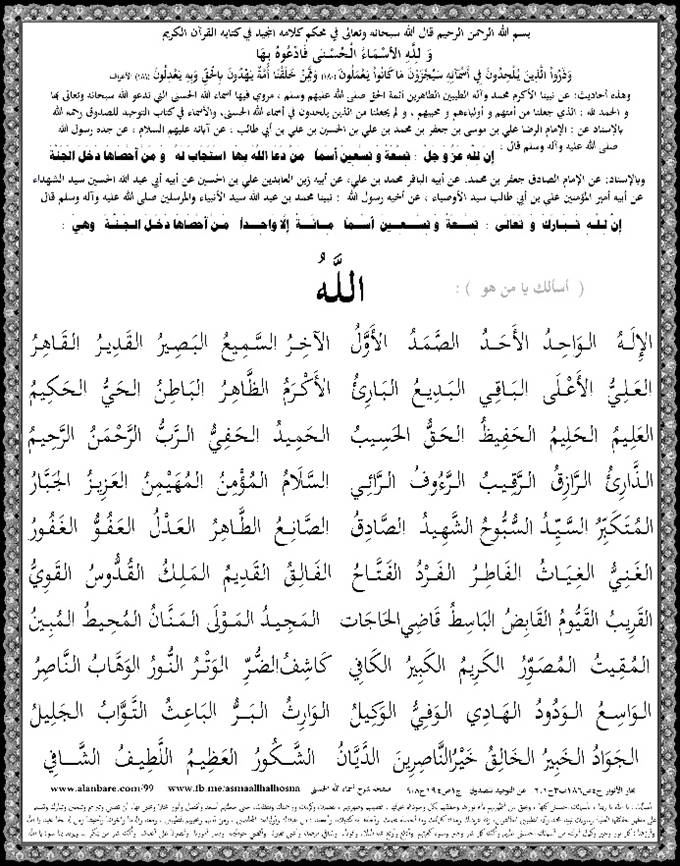 بسم الله الرحمن الرحيم قال الله سبحانه وتعالى في محكم كلامه المجيد في كتابه القرآن الكريم
وَ لِلَّهِ الأَسْمَاءُ الْحُسْنَى فَادْعُوهُ بِهَا
وَذَرُوا الَّذِينَ يُلْحِدُونَ فِي أَسْمَائِهِ سَيُجْزَوْنَ مَا كَانُوا يَعْمَلُونَ (١٨٠) وَمِمَّنْ خَلَقْنَا أُمَّةٌ يَهْدُونَ بِالْحَقِّ وَبِهِ يَعْدِلُونَ (١٨١) الأعراف
وهذه أحاديث: عن نبينا الأكرم محمد وآله الطيبين الطاهرين أئمة الحق صلى الله عليهم وسلم ، مروي فيها أسماء الله الحسنى التي ندعو الله سبحانه وتعالى بها
و الحمد لله : الذي جعلنا من أمتهم و أولياءهم و محبيهم ، و لم يجعلنا من الذين يلحدون في أسماء الله الحسنى، والأسماء في كتاب التوحيد للصدوق رحمه الله
بالإسناد عن : الإمام الرضا علي بن موسى بن جعفر بن محمد بن علي بن الحسين بن علي بن أبي طالب ، عن آبائه عليهم السلام ، عن جده رسول الله
صلى الله عليه وآله وسلم قال :
إن لله عز و جل : تسعة و تسعين أسما من دعا الله بها استجاب له و من أحصاها دخل الجنة
وبالإسناد: عن الإمام الصادق جعفر بن محمد، عن أبيه الباقر محمد بن علي، عن أبيه زين العابدين علي بن الحسين عن أبيه أبي عبد الله الحسين سيد الشهداء
عن أبيه أمير المؤمنين علي بن أبي طالب سيد الأوصياء ، عن أخيه رسول الله : نبينا محمد بن عبد الله سيد الأنبياء والمرسلين صلى الله عليه وآله وسلم قال
إن لـلـه تـبـارك و تعالى : تسعة و تسعين أسما مائة إلا واحدا من أحصاها دخل الجنة وهي :
( أسالك يا من هو ) : اللَّهُ
الإِلَهُ الوَاحِدُ الأَحَدُ الصَّمَدُ الأَوَّلُ الآخِرُ السَّمِيعُ البَصِيرُ القَدِيرُ القَاهِرُ
العَلِيُّ الأَعْلَى البَاقِي البَدِيعُ البَارِئُ الأَكْرَمُ الظَّاهِرُ البَاطِنُ الحَيُّ الحَكِيمُ
العَلِيمُ الحَلِيمُ الحَفِيظُ الحَقُّ الحَسِيبُ الحَمِيدُ الحَفِيُّ الرَّبُّ الرَّحْمَنُ الرَّحِيمُ
الذَّارِئُ الرَّازِقُ الرَّقِيبُ الرَّءُوفُ الرَّائِي السَّلَامُ المُؤْمِنُ المُهَيْمِنُ العَزِيزُ الجَبَّارُ
المُتَكَبِّرُ السَّيِّدُ السُّبُّوحُ الشَّهِيدُ الصَّادِقُ الصَّانِعُ الطَّاهِرُ العَدْلُ العَفُوُّ الغَفُورُ
الغَنِيُّ الغِيَاثُ الفَاطِرُ الفَرْدُ الفَتَّاحُ الفَالِقُ القَدِيمُ المَلِكُ القُدُّوسُ القَوِيُّ
القَرِيبُ القَيُّومُ القَابِضُ البَاسِطُ قَاضِي الحَاجَات المَجِيدُ المَوْلَى المَنَّانُ المُحِيطُ المُبِينُ
المُقِيتُ المُصَوِّرُ الكَرِيمُ الكَبِيرُ الكَافِي كَاشِفُ الضُّرِّ الوَتْرُ النُّورُ الوَهَّابُ النَّاصِرُ
الوَاسِعُ الوَدُودُ الهَادِي الوَفِيُّ الوَكِيلُ الوَارِثُ البَرُّ البَاعِثُ التَّوَّابُ الجَلِيلُ
الجَوَادُ الخَبِيرُ الخَالِقُ خَيْرُ النَّاصِرِينَ الدَّيَّانُ الشَّكُورُ العَظِيمُ اللَّطِيفُ الشَّافِي
بحار الأنوار عن التوحيد للصدوق صفحة شرح أسماء الله الحسنى www.fb.me/asmaallhalhosna www.alanbare.com/99